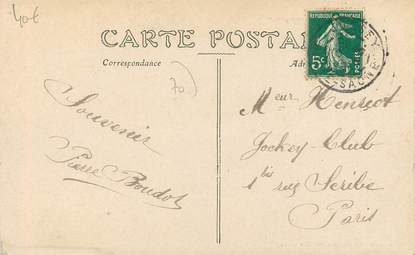 40€
CARTE POSTA
Correspondance
RÉPUBLIQUE FRANÇAISE
5c
POSTES
SAÔNE
70
Souvenir
Pierre Boudot
Meur Henriot
Jockey-Club
1bis rue Scribe
Paris